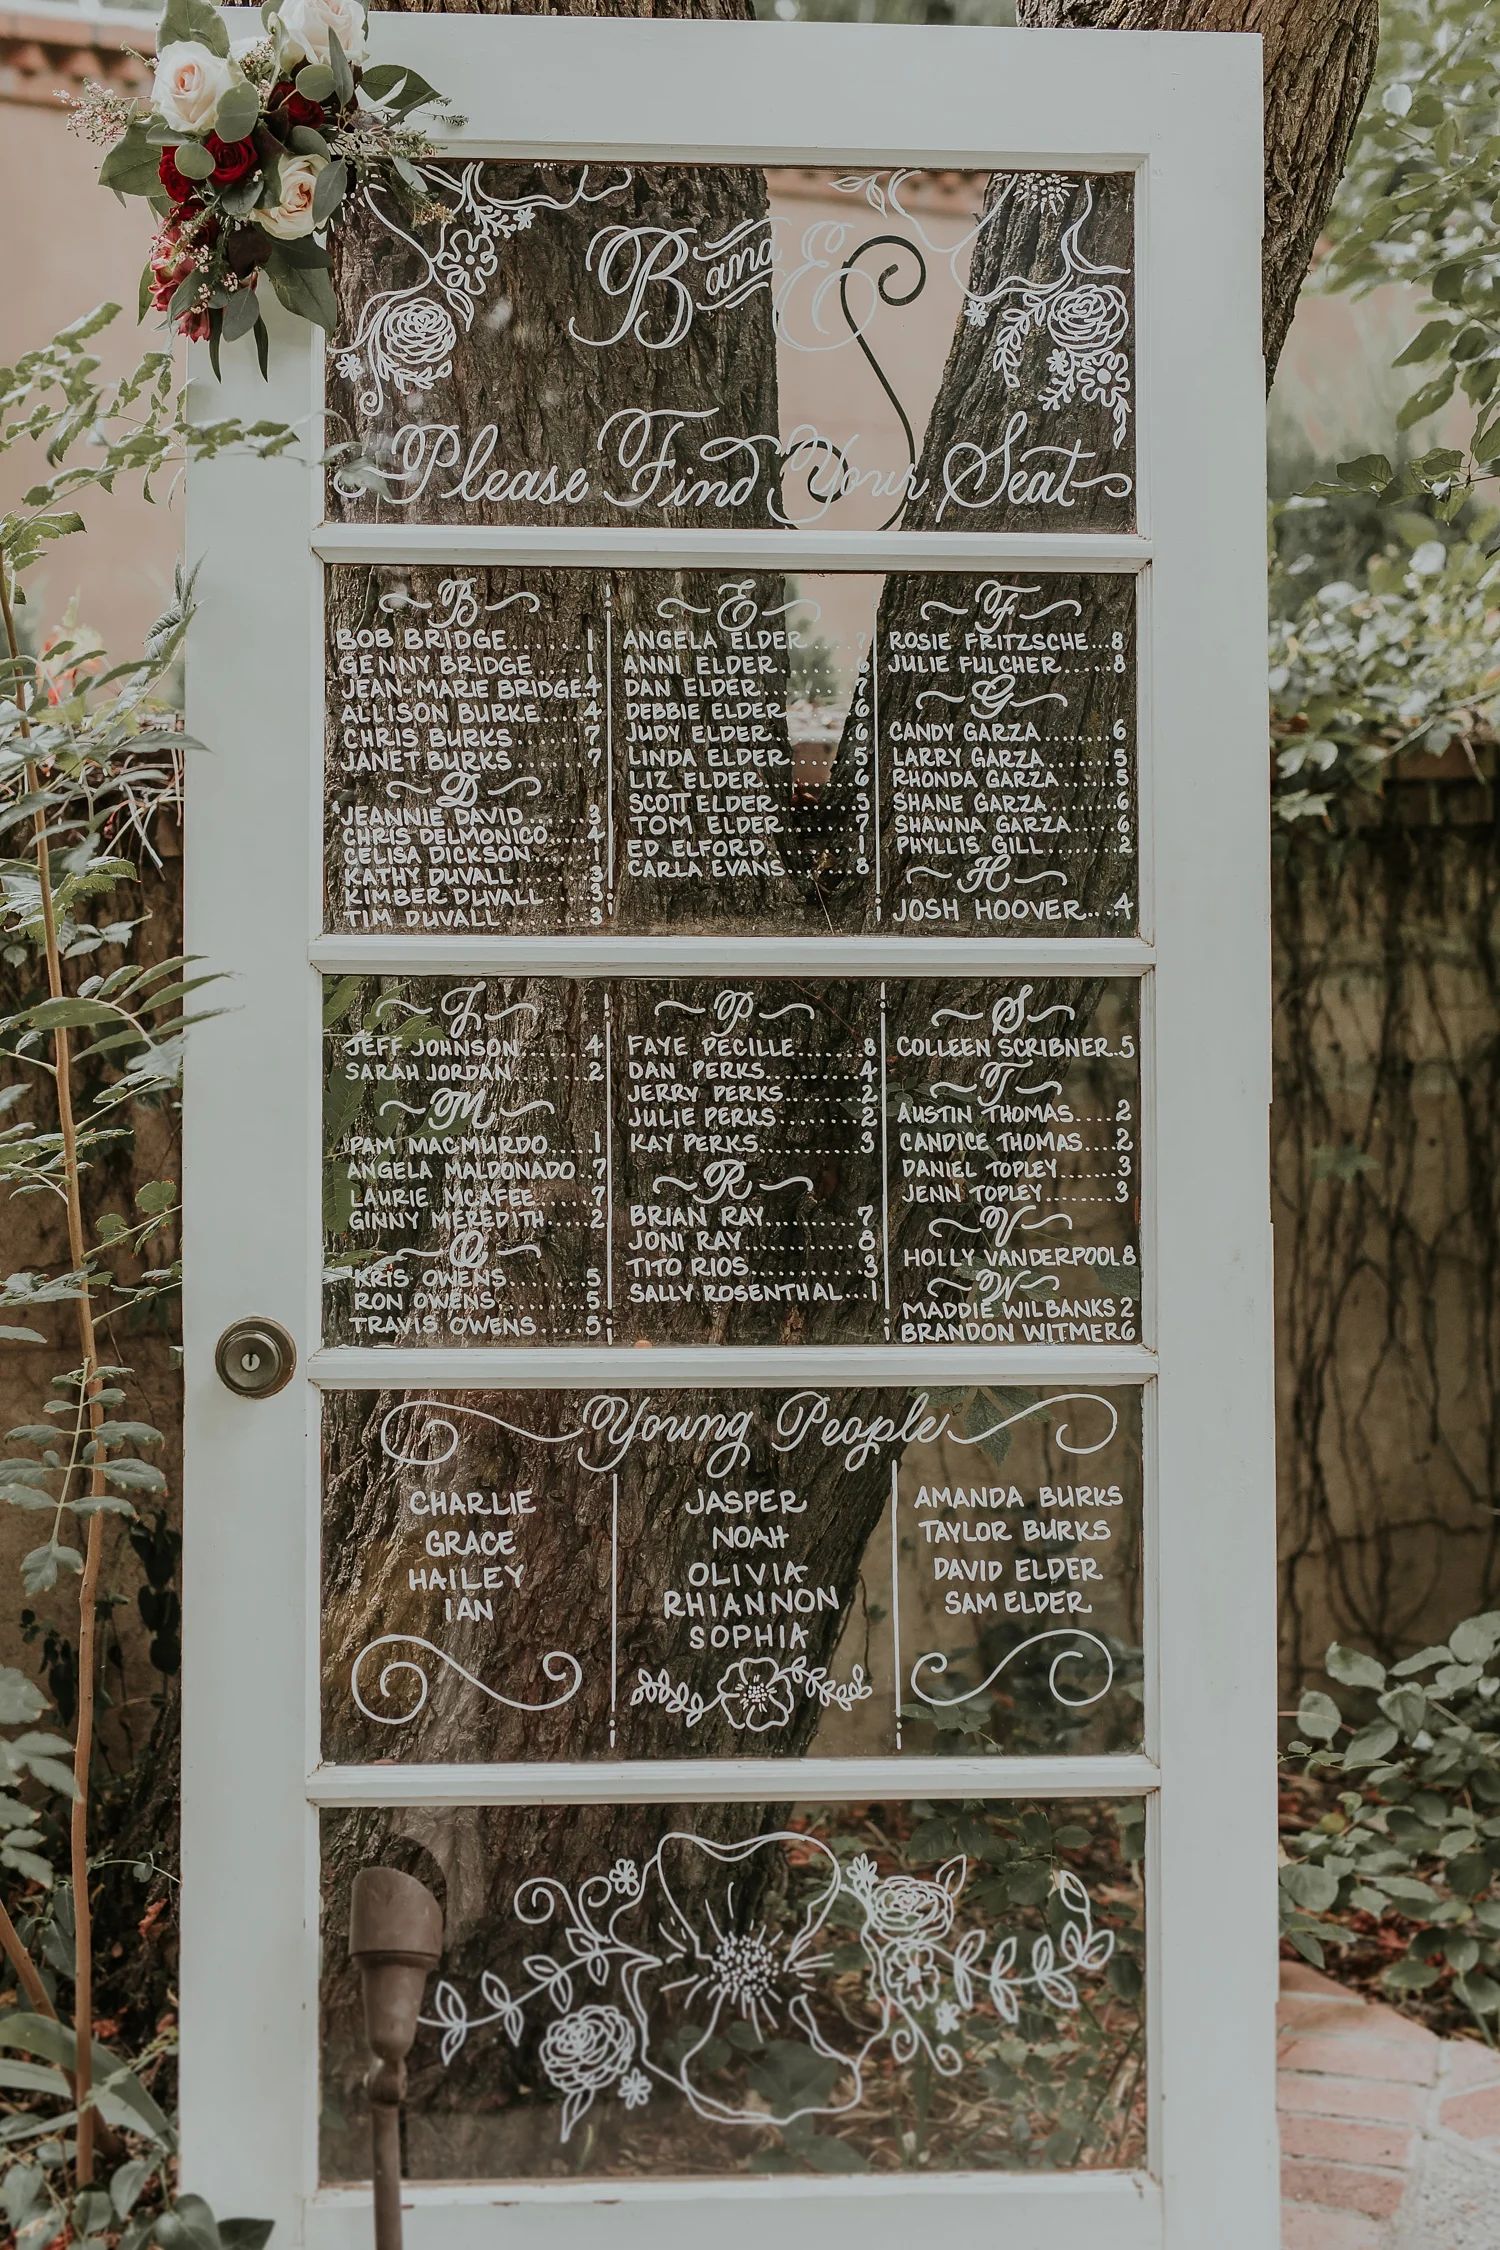 B and E
Please Find Your Seat
B
BOB BRIDGE.......1
GENNY BRIDGE 1
JEAN-MARIE BRIDGE 4
ALLISON BURKE.....4
CHRIS BURKS.......7
JANET BURKS.......7
D
JEANNIE DAVID.....3
CHRIS DELMONICO...4
CELISA DICKSON....1
KATHY DUVALL......3
KIMBER DUVALL...3
TIM DUVALL........3
E
ANGELA ELDER....7
ANNI ELDER........6
DAN ELDER.........7
DEBBIE ELDER......6
JUDY ELDER........6
LINDA ELDER.......5
LIZ ELDER.........6
SCOTT ELDER.......5
TOM ELDER.......7
ED ELFORD.........1
CARLA EVANS.......8
F
ROSIE FRITZSCHE...8
JULIE FULCHER.....8
G
CANDY GARZA........6
LARRY GARZA.......5
RHONDA GARZA......5
SHANE GARZA.......6
SHAWNA GARZA....6
PHYLLIS GILL......2
H
JOSH HOOVER....4
J
JEFF JOHNSON......4
SARAH JORDAN......2
M
PAM MACMURDO....1
ANGELA MALDONADO..7
LAURIE MCAFEE.....7
GINNY MEREDITH.....2
O
KRIS OWENS.......5
RON OWENS........5
TRAVIS OWENS.....5
P
FAYE PECILLE.......8
DAN PERKS.........4
JERRY PERKS.......2
JULIE PERKS.......2
KAY PERKS.........3
R
BRIAN RAY.........7
JONI RAY..........8
TITO RIOS.........3
SALLY ROSENTHAL...1
S
COLLEEN SCRIBNER..5
T
AUSTIN THOMAS....2
CANDICE THOMAS....2
DANIEL TOPLEY.....3
JENN TOPLEY.......3
V
HOLLY VANDERPOOL 8
W
MADDIE WILBANKS 2
BRANDON WITMER 6
Young People
CHARLIE
GRACE
HAILEY
IAN
JASPER
NOAH
OLIVIA
RHIANNON
SOPHIA
AMANDA BURKS
TAYLOR BURKS
DAVID ELDER
SAM ELDER